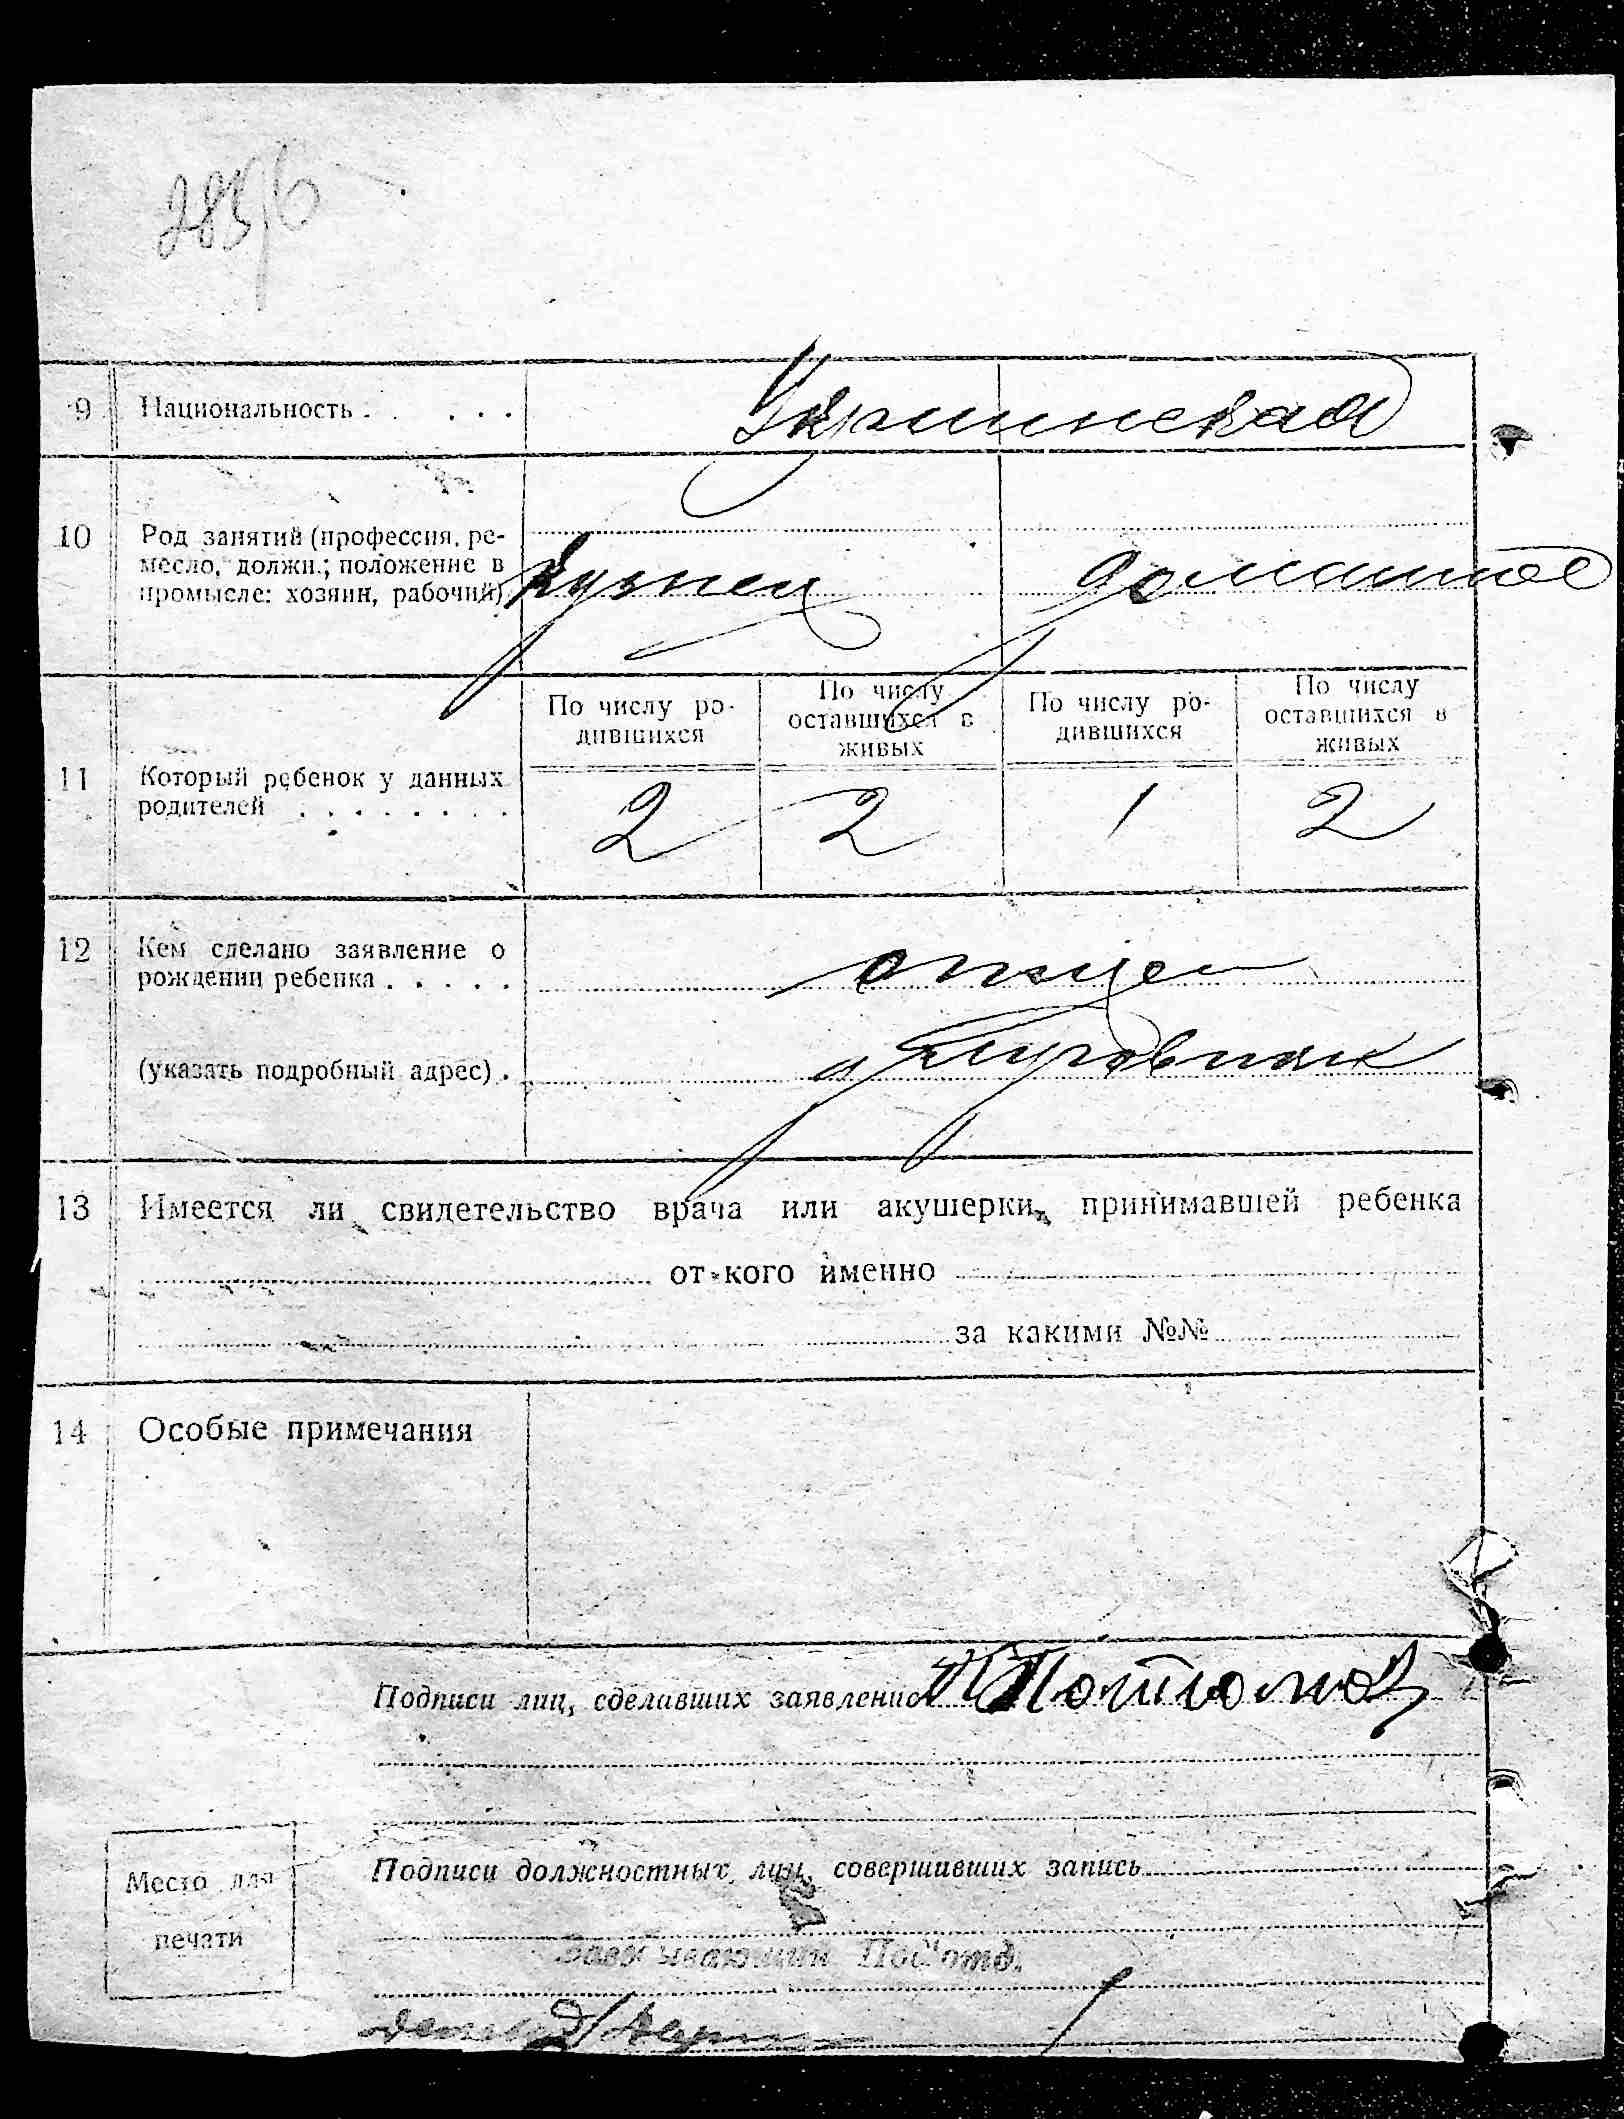 9 Национальность . . . . . Украинская
10 Род занятий (профессия, ре-
месло, должн.; положение в
промысле: хозяин, рабочий)
Кузнец домашнее
По числу ро- дившихся По числу оставшихся в живых По числу ро- дившихся По числу оставшихся в живых
11 Который ребенок у данных
родителей . . . . . . . .
2 2 1 2
12 Кем сделано заявление о
рождении ребенка . . . . . отцем
(указать подробный адрес) .
13 Имеется ли свидетельство врача или акушерки, принимавшей ребенка
от кого именно
за какими №№
14 Особые примечания
Подписи лиц, сделавших заявление
Подписи должностных лиц, совершивших запись
Место для
печати
Заведывающий Под'отд.